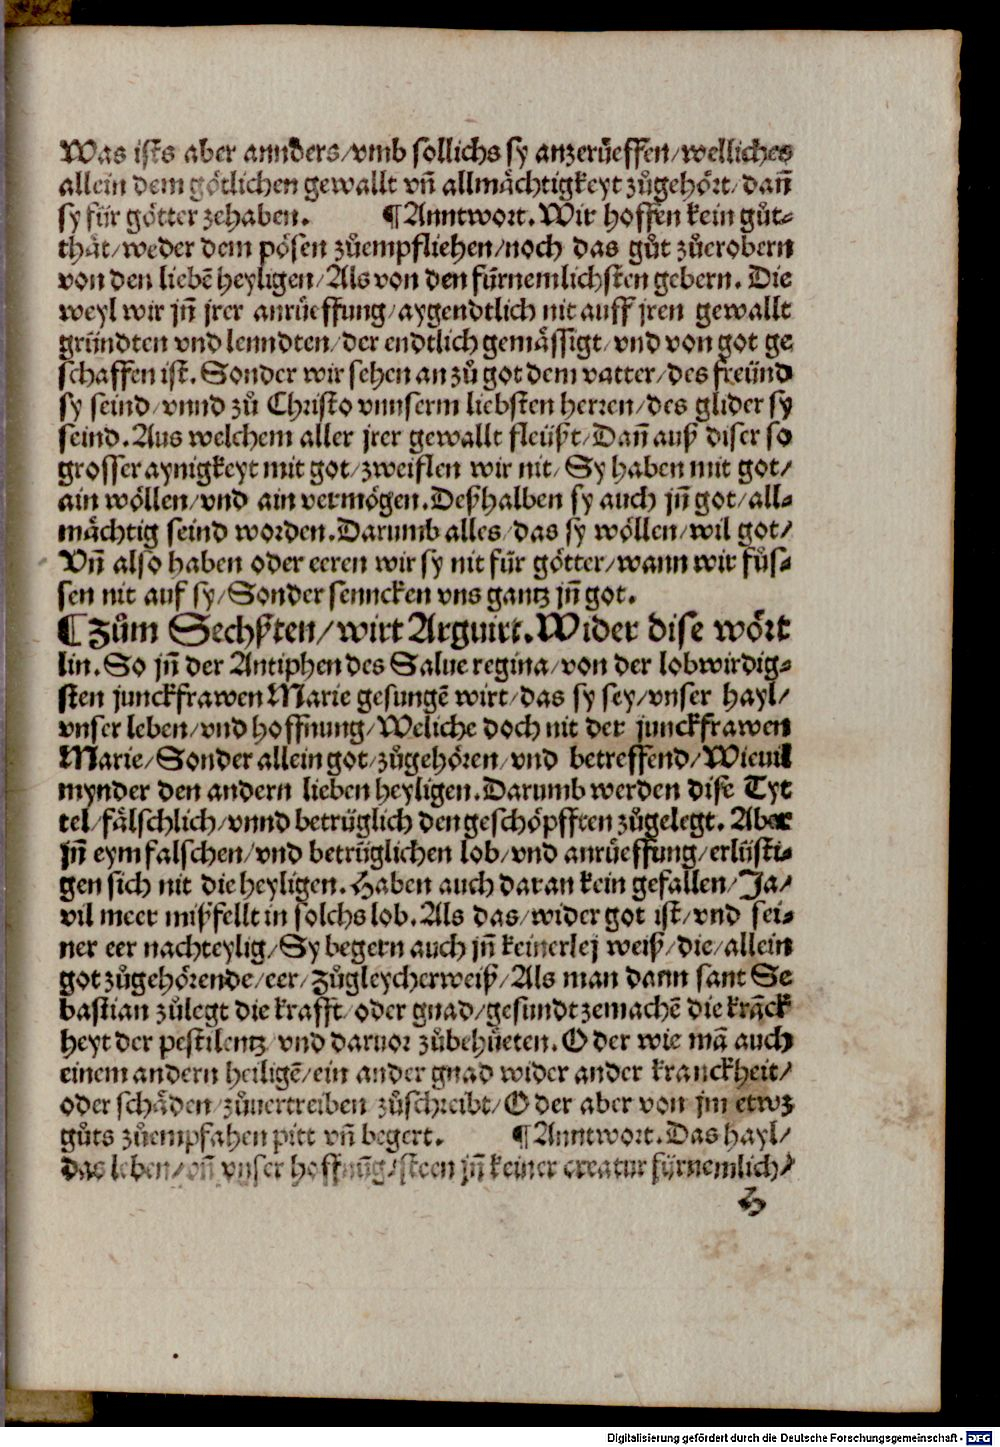 Was ists aber annders/vmb sollichs sy anzerůeffen/welliches
allein dem götlichen gewallt vñ allmächtigkeyt zůgehört/dañ
sy für götter zehaben. ¶Anntwort. Wir hoffen kein gůt-
thät/weder dem pösen zůempfliehen/noch das gůt zůerobern
von den liebē heyligen/Als von den fürnemlichsten gebern. Die
weyl wir jñ jrer anrůeffung/aygendtlich nit auff jren gewallt
gründten vnd lenndten/der endtlich gemässigt/vnd von got ge
schaffen ist. Sonder wir sehen an zů got dem vatter/des freünd
sy seind/vnnd zů Christo vnnserm liebsten herren/des glider sy
seind. Aus welchem aller jrer gewallt fleüßt/Dañ auß diser so
grosser aynigkeyt mit got/zweiflen wir nit/Sy haben mit got/
ain wöllen/vnd ain vermögen. Deßhalben sy auch jñ got/all-
mächtig seind worden. Darumb alles/das sy wöllen/wil got/
Vñ also haben oder eeren wir sy nit für götter/wann wir fůs-
sen nit auf sy/Sonder senncken vns gantz jñ got.
¶Zům Sechßten/wirt Arguirt. Wider dise wört
lin. So jñ der Antiphen des Salue regina/von der lobwirdig-
sten junckfrawen Marie gesungē wirt/das sy sey/vnser hayl/
vnser leben/vnd hoffnung/Weliche doch nit der junckfrawen
Marie/Sonder allein got/zůgehören/vnd betreffend/Wieuil
mynder den andern lieben heyligen. Darumb werden dise Tyt
tel/fälschlich/vnnd betrüglich den geschöpfften zůgelegt. Aber
jñ eym falschen/vnd betrüglichen lob/vnd anrůeffung/erlüsti-
gen sich nit die heyligen. Haben auch daran kein gefallen/Ja/
vil meer mißfellt in solchs lob. Als das/wider got ist/vnd sei-
ner eer nachteylig/Sy begern auch jñ keinerlej weiß/die/allein
got zůgehörende/eer/Zůgleycherweiß/Als man dann sant Se
bastian zůlegt die krafft/oder gnad/gesundt zemachē die krāck
heyt der pestilentz/vnd daruor zůbehüeten. Oder wie mā auch
einem andern heiligē/ein ander gnad wider ander kranckheit/
oder schäden/zůuertreiben zůschreibt/Oder aber von jm etwz
gůts zůempfahen pitt vñ begert. ¶Anntwort. Das hayl/
das leben/vñ vnser hoffnūg/steen jñ keiner creatur fürnemlich/
H
Digitalisierung gefördert durch die Deutsche Forschungsgemeinschaft - DFG